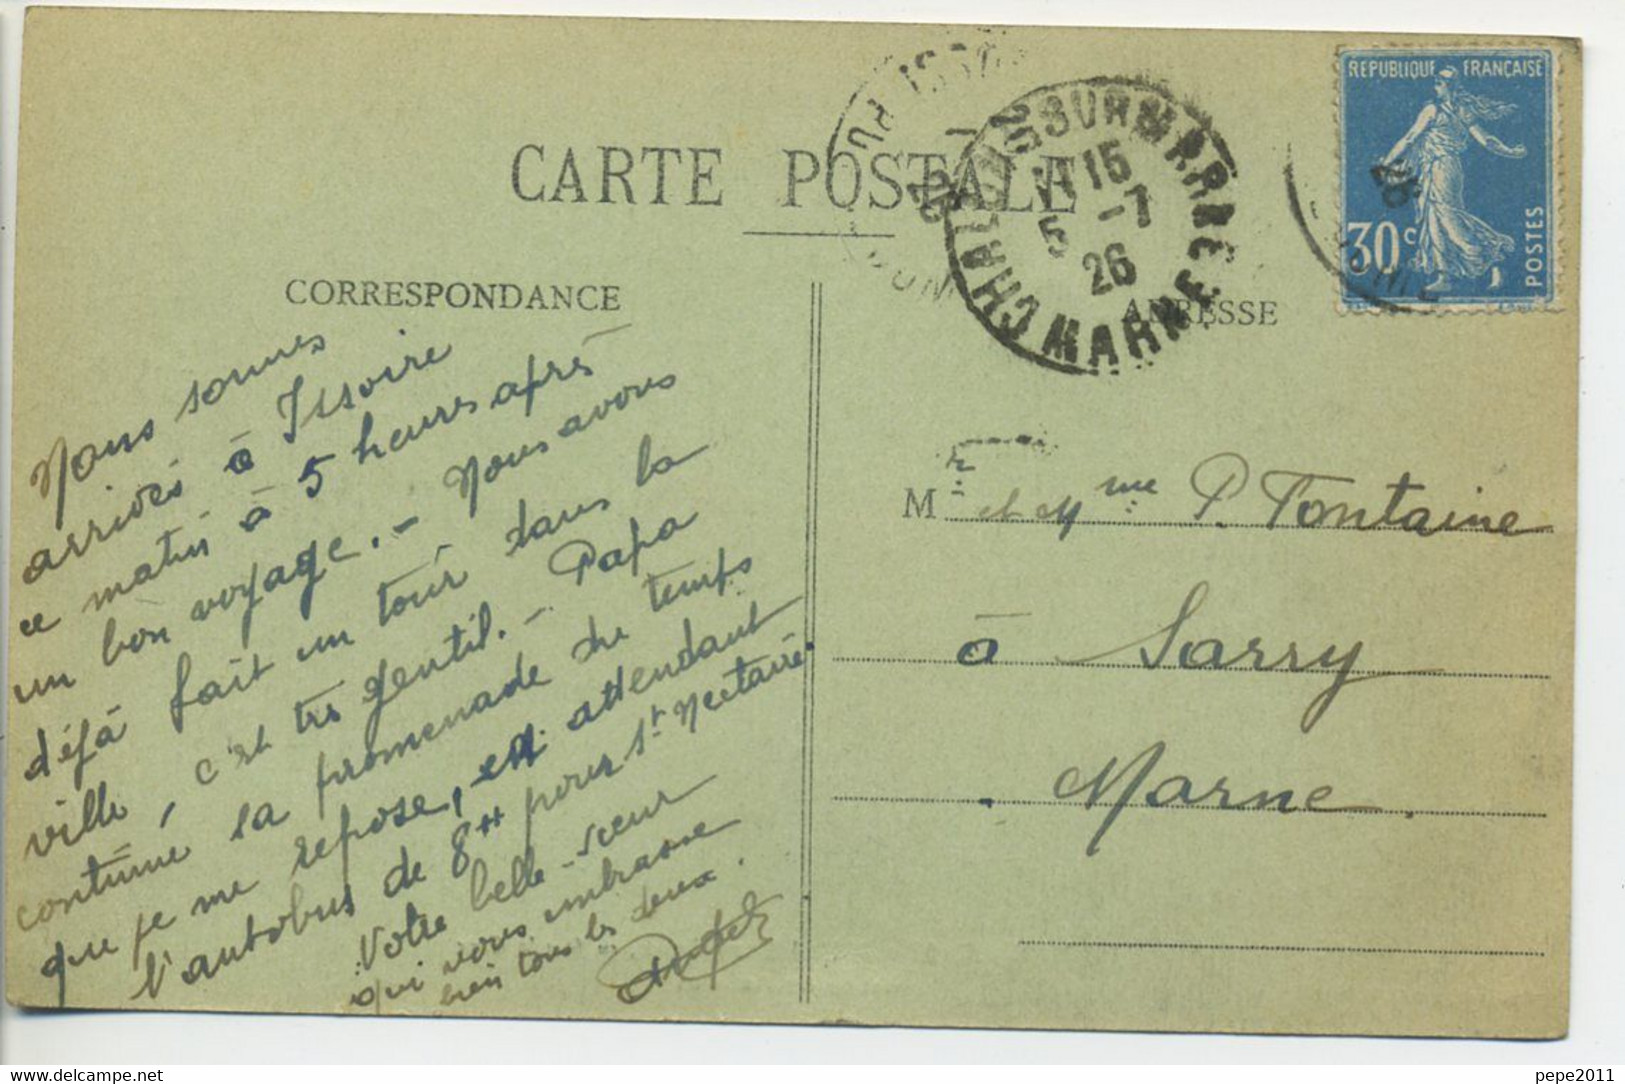 CARTE POSTALE
CORRESPONDANCE
Nous sommes
arrivés à Issoire
ce matin à 5 heures après
un bon voyage. - Nous avons
déjà fait un tour dans la
ville, c'est très gentil. - Papa
continue sa promenade du temps
que je me repose, en attendant
l'autobus de 8H pour St Nectaire.
Votre belle-soeur
qui vous embrasse
bien tous les deux.
REPUBLIQUE FRANÇAISE
30c
POSTES
CHALONS SUR MARNE
MARNE
15
5 -7
26
26
ADRESSE
Mr et Mme P. Fontaine
à Sarry
Marne.
hip-delcampe.net
pepe2011